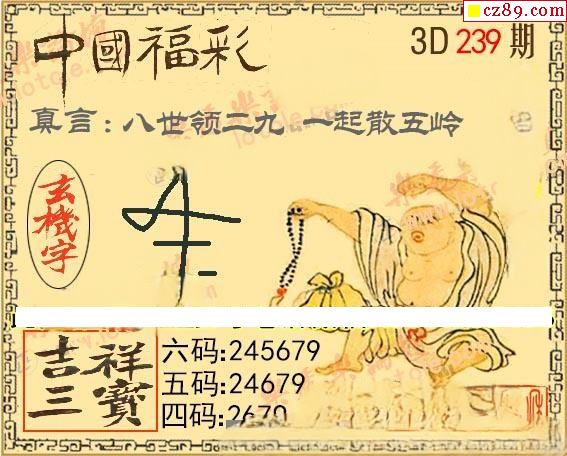 cz89.com
中國福彩
3D 239 期
真言:八世领二九 一起散五岭
玄機字
吉祥三寶
六码:245679
五码:24679
四码:2679